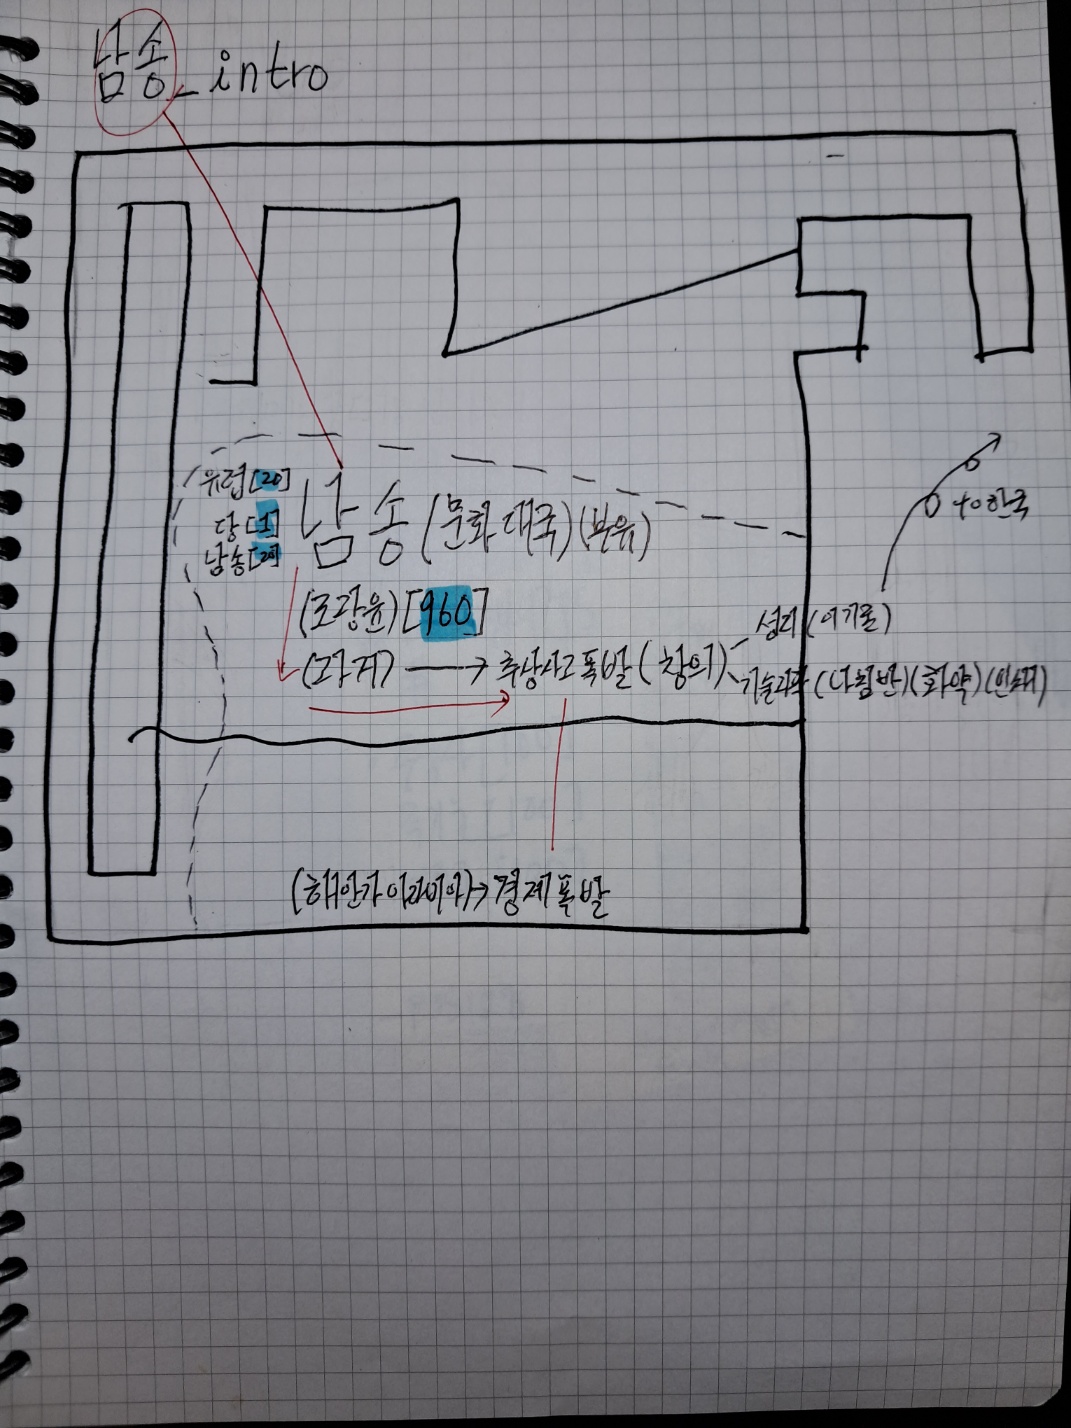 남송_intro
유럽[20]
당[1]
남송[20]
남송(문화대국)(부유)
(조광윤)[960]
(과거) → 추상사고폭발(창의)
성리(이기론)
기술과학(나침반)(화약)(인쇄)
한국
(해안가 이라미아)→경제폭발